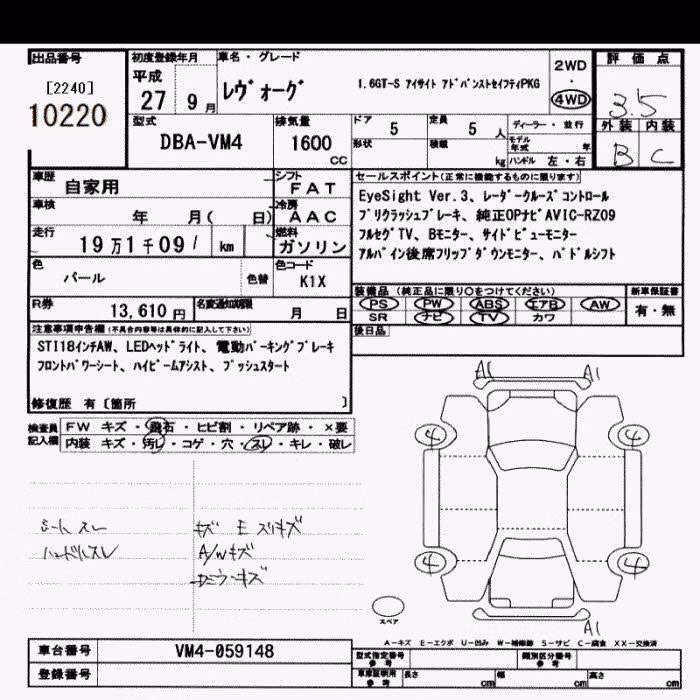 出品番号
[2240]
10220
初度登録年月
平成
27 9月
車名・グレード
レヴォーグ
1.6GT-S アイサイト アドバンストセイフティPKG
2WD
・
4WD
評価点
3.5
外装 内装
B C
型式
DBA-VM4
排気量
1600
CC
ドア
5
形状
定員
5 人
積載
kg
ディーラー・並行
モデル年式 年
ハンドル 左・右
車歴
自家用
シフト
FAT
車検
年 月( 日)
冷房
AAC
走行
19万1千091 km
燃料
ガソリン
色
パール
色替
色コード
K1X
R券
13,610円
名変通知期限
月 日
セールスポイント(正常に機能するものに限ります)
EyeSight Ver.3、レーダークルーズコントロール
プリクラッシュブレーキ、純正OPナビAVIC-RZ09
フルセグTV、Bモニター、サイドビューモニター
アルパイン後席フリップダウンモニター、パドルシフト
装備品(純正品に限り○をつけてください)
PS PW ABS エアB AW
SR ナビ TV カワ
新車保証書
有・無
後日品
注意事項申告欄(不具合内容等は具体的に記入して下さい)
STI18インチAW、LEDヘッドライト、電動パーキングブレーキ
フロントパワーシート、ハイビームアシスト、プッシュスタート
修復歴 有〔箇所 〕
検査員記入欄
FW キズ・飛石・ヒビ割・リペア跡・×要
内装 キズ・汚レ・コゲ・穴・スレ・キレ・破レ
シートスレ
ハンドルスレ
キズ E スリキズ
A/Wキズ
A1 A1
4 4
4 4
A1
スペア
A-キズ E-エクボ U-凹み W-補修跡 S-サビ C-腐食 XX-交換済
車台番号
VM4-059148
登録番号
型式指定番号
参考
類別区分番号
参考
車庫証明用
参考
長さ cm
幅 cm
高さ cm